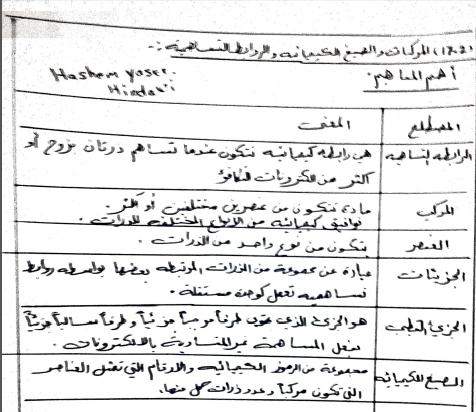 (12.2) المركبات والصيغ الكيميائيه والروابط التساهمية :-
Hashem yaser
Hindawi
أهم المفاهيم:
المصطلح المعنى
الرابطه التساهميه هي رابطه كيميائيه تتكون عندما تساهم ذرتان بزوج أو
أكثر من الكترونات التكافؤ
المركب مادة تتكون من عنصرين مختلفين أو أكثر.
توافيق كيميائيه من الأنواع المختلفه للذرات.
العنصر يتكون من نوع واحد من الذرات.
الجزيئات عبارة عن مجموعة من الذرات المرتبطه ببعضها بواسطه روابط
تساهميه تعمل كوحدة مستقله.
الجزيء القطبي هو الجزيء الذي يحوي طرفاً موجباً جزئياً وطرفاً سالباً جزئياً
بفعل المساهمة غير المتساوية بالالكترونات.
الصيغ الكيميائيه مجموعة من الرموز الكيميائيه والارقام التي تمثل العناصر
التي تكون مركباً وعدد ذرات كل منها.